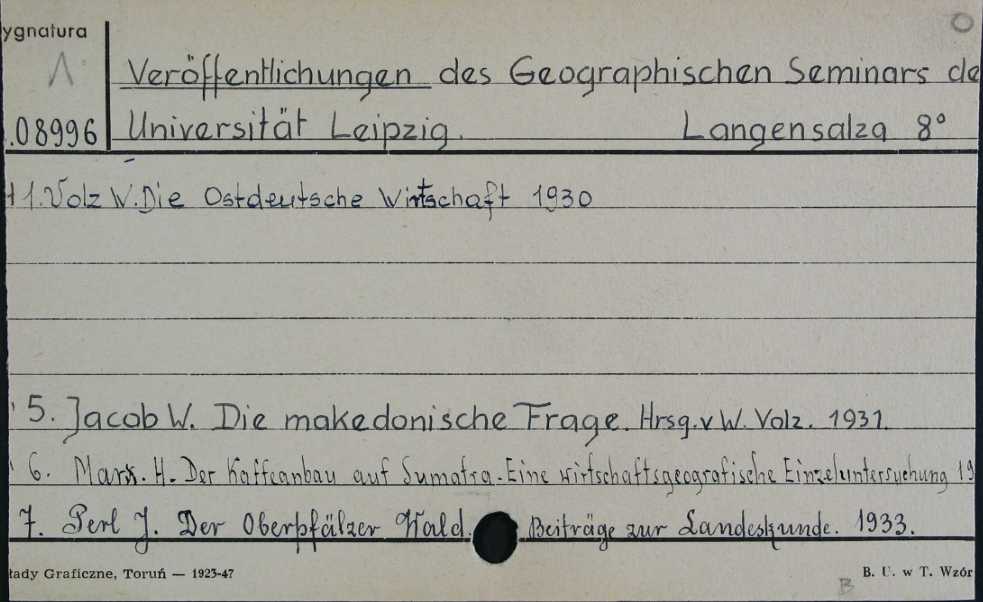 ygnatura
Λ
Veröffentlichungen des Geographischen Seminars de
.08996 Universität Leipzig. Langensalza 8°
1. Volz W. Die Ostdeutsche Wirtschaft 1930
5. Jacob W. Die makedonische Frage. Hrsg. v W. Volz. 1931.
6. Marx. H. Der Kaffeanbau auf Sumatra. Eine wirtschaftsgeografische Einzeluntersuchung 19
7. Perl J. Der Oberpfälzer Wald. Beiträge zur Landeskunde. 1933.
łady Graficzne, Toruń — 1923-47 B. U. w T. Wzór
B